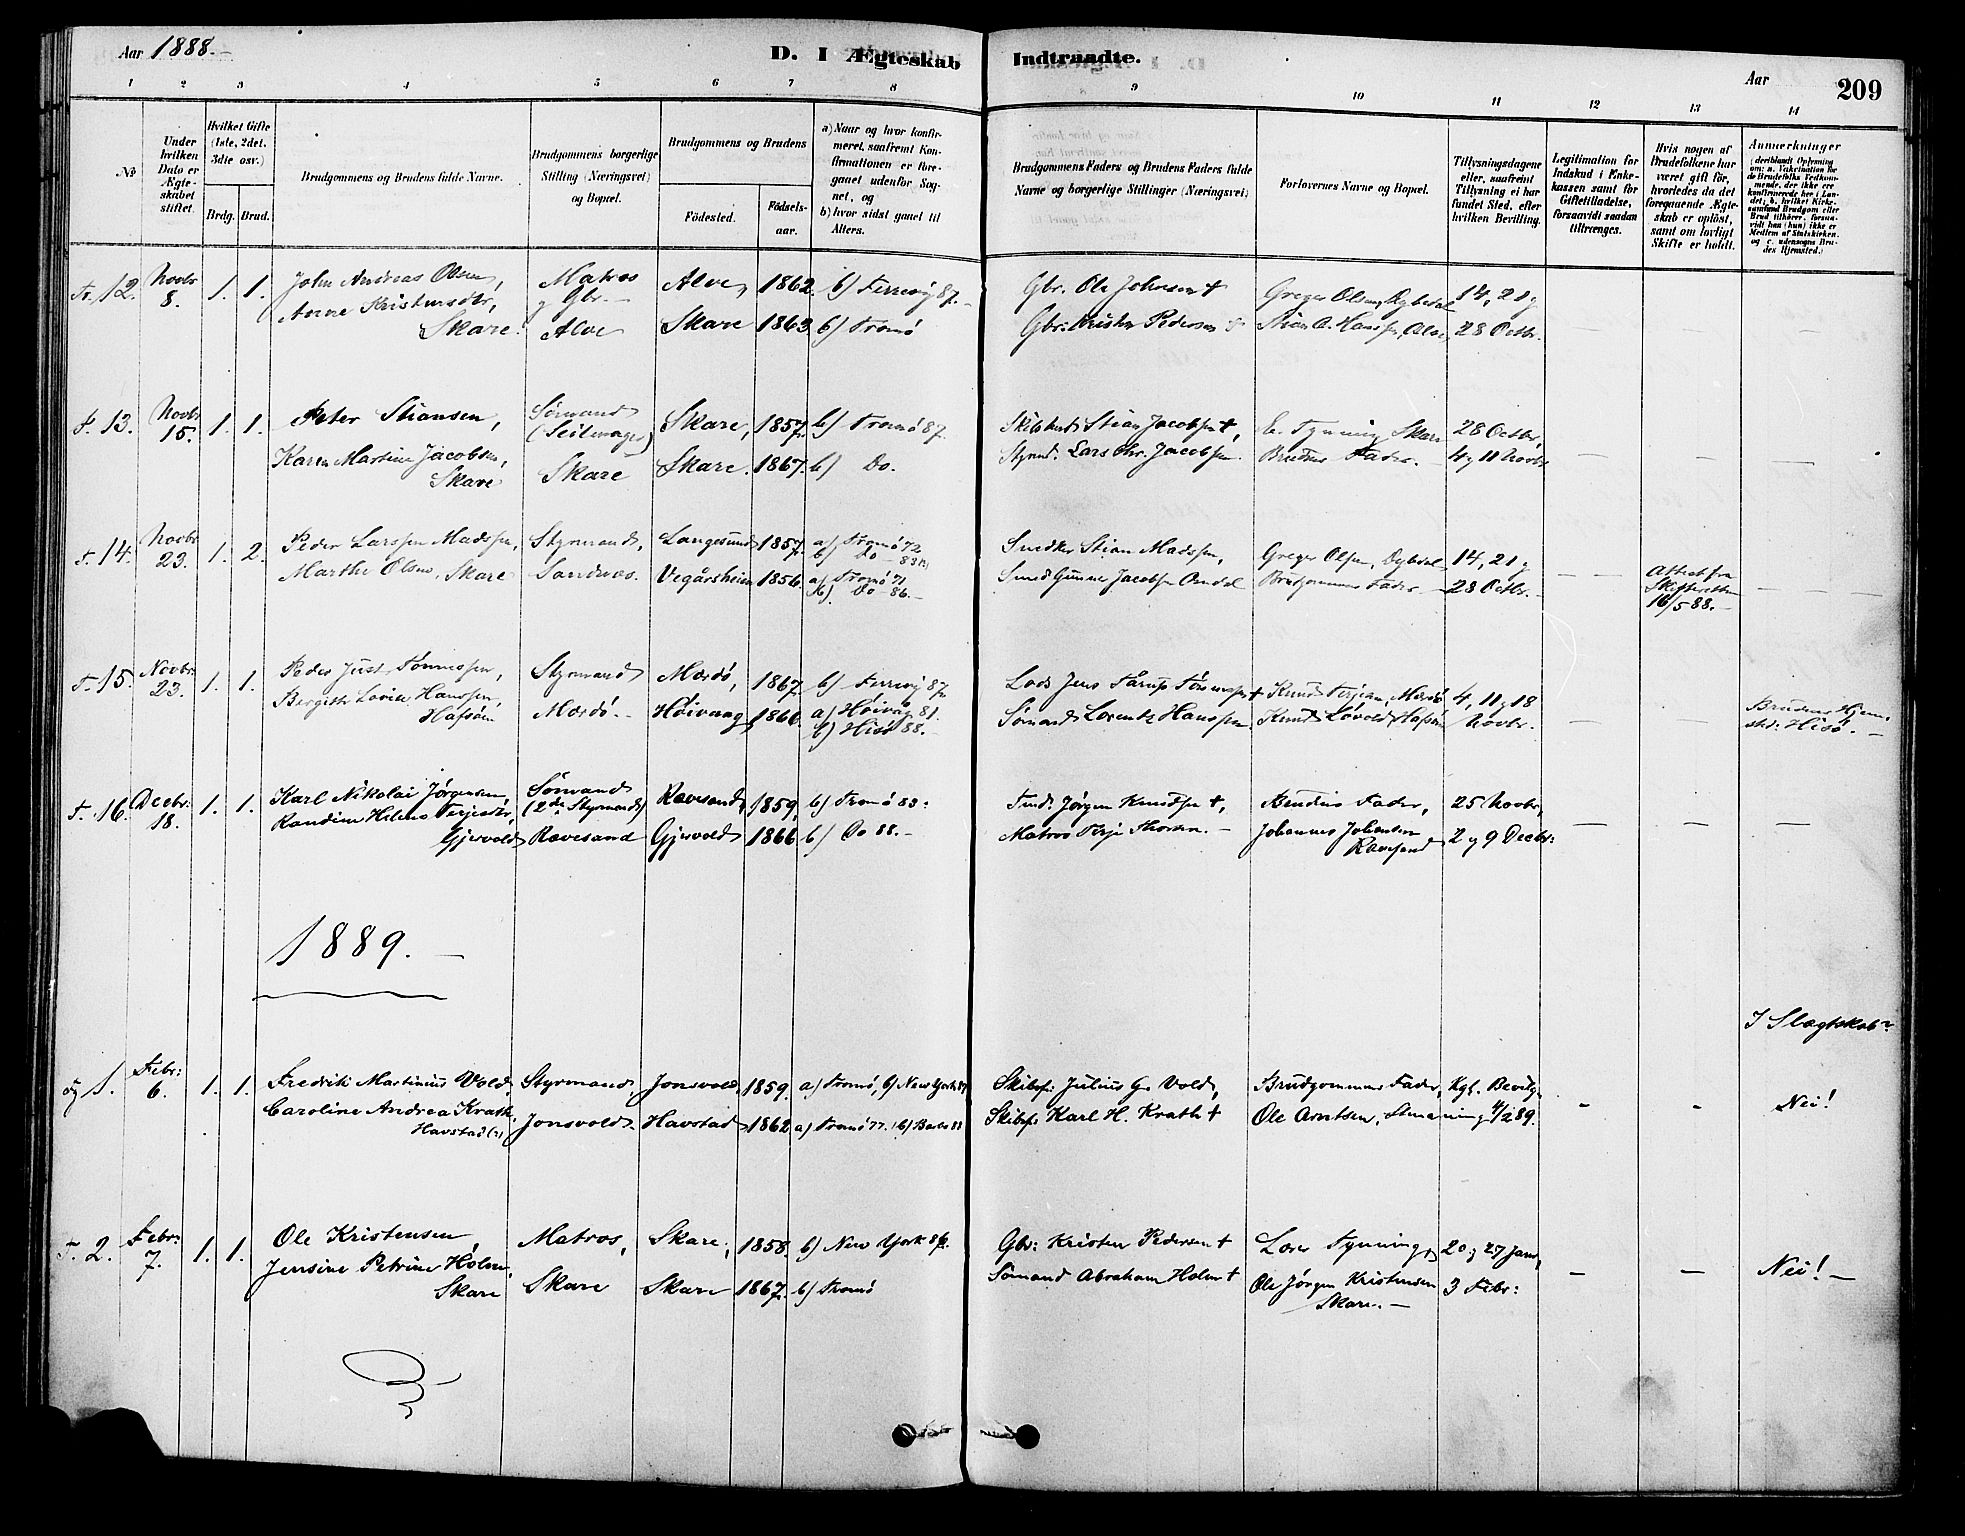 Aar 1888.-
D. I Ægteskab Indtraadte.
Aar 209
1 2 3 4 5 6 7 8 9 10 11 12 13 14
No
Under hvilken Dato er Ægteskabet stiftet.
Hvilket Gifte (1ste, 2det, 3die osv.)
Brdg. Brud.
Brudgommens og Brudens fulde Navne.
Brudgommens borgerlige Stilling (Næringsvei) og Bopæl.
Brudgommens og Brudens
Fødested.
Fødselsaar.
a) Naar og hvor konfirmeret, saafremt Konfirmationen er foregaaet udenfor Sognet, og
b) hvor sidst gaaet til Alters.
Brudgommens Faders og Brudens Faders fulde Navne og borgerlige Stillinger (Næringsvei)
Forlovernes Navne og Bopæl.
Tillysningsdagene eller, saafremt Tillysning ei har fundet Sted, efter hvilken Bevilling.
Legitimation for Indskud i Enkekassen samt for Giftetilladelse, forsaavidt saadan tiltrænges.
Hvis nogen af Brudefolkene har været gift før, hvorledes da det foregaaende Ægteskab er opløst, samt om lovligt Skifte er holdt.
Anmærkninger (deriblandt Oplysning om: a. Vakcination for de Brudefolks Vedkommende, der ikke ere konfirmerede her i Landet; b. hvilket Kirkesamfund Brudgom eller Brud tilhører, forsaavidt han (hun) ikke er Medlem af Statskirken, og c. udensogns Brudes Hjemsted.)
Tr. 12. Novbr 8. 1. 1. John Andreas Olsen, Matros Alve, 1862. b) Færevig 87.- Gbr. Ole Johnsen † Greger Olsen, Dybedal 14, 21 og
Anne Kristensdtr, og Gbr.- Skare 1863 b) Tromø Gbr: Kristen Pedersen 28 Octbr.
Skare. Alve
T. 13. Novbr 15. 1. 1. Peter Stiansen, Sømand Skare, 1857, b) Tromø 87. Stian Jacobsen †, Tynning Skare 28 Octbr,
Karen Martine Jacobsen, (Seilmager) Skare. 1867. b) Do. Styrmd. Lars Chr. Jacobsen. Brudens Fader. - 4 og 11 Novbr
Skare Skare
T. 14. Novbr 23. 1. 2. Peder Larssen Madssen, Styrmand, Langesund 1857, a) Tromø 72 b) Do 83 Snedker Stian Madssen, Greger Olsen, Dybdal 14, 21 og
Marthe Olsen, Skare Sandnæs. Vegårsheien 1856. a) Tromø 71 b) Do 86.- Smed Gunner Jacobsen Omdal Brudgommens Fader 28 Octbr. Attest fra Skifteretten 16/5 88.-
T. 15. Novbr. 23. 1. 1. Peder Just Tønnessen, Styrmand Mærdø, 1867 b) Færevig 87, Lods Jens Tårup Tønnessen † Knud Terjesen, Mærdø, 4, 11 og 18
Bergith Lovise Hanssen, Mærdø.- Høivaag, 1866 a) Høivåg 81. Sømand Lorents Hanssen. Knud Løvold Novbr. Brudens Hjem
b) Hisø 88.- sted: Hisø.-
T. 16. Decbr: 18. 1. 1. Karl Nikolai Jørgensen, Sømand Rævesand, 1859, b) Tromø 83: Jørgen Knudsen †, Brudens Fader, 25 Novbr,
Randine Helene Terjesdtr, (2den Styrmand) Gjervold 1866 b) Do 88.- Matros Terje Thorsen. - Johannes Johansen 2 og 9 Decbr:
Gjervold Rævesand Rævesand
1889. -
I Slægtskab?
1. Febr: 6. 1. 1. Fredrik Martinius Vold, Styrmand, Jonsvold, 1859. a) Tromø, b) New York 87 Skibsfr: Julius G. Vold, Brudgommens Fader, Kgl. Bevilg.
Caroline Andrea Krath, Jonsvold. Havstad, 1862 a) Tromø 77. b) Barbo 88 Skibsfr: Karl H. Krath † Ole Arntsen, 4/2 89. - - Nei!
Havstad
T. 2. Febr: 7. 1. 1. Ole Kristensen, Matros, Skare, 1858. b) New York 86. Gbr: Kristen Pedersen † Tynning, 20 og 27 Janr,
Jensine Petrine Holm, Skare Skare 1867. b) Tromø Sømand Abraham Holm † Ole Jørgen Kristensen 3 Febr: - - Nei! -
Skare Skare. -